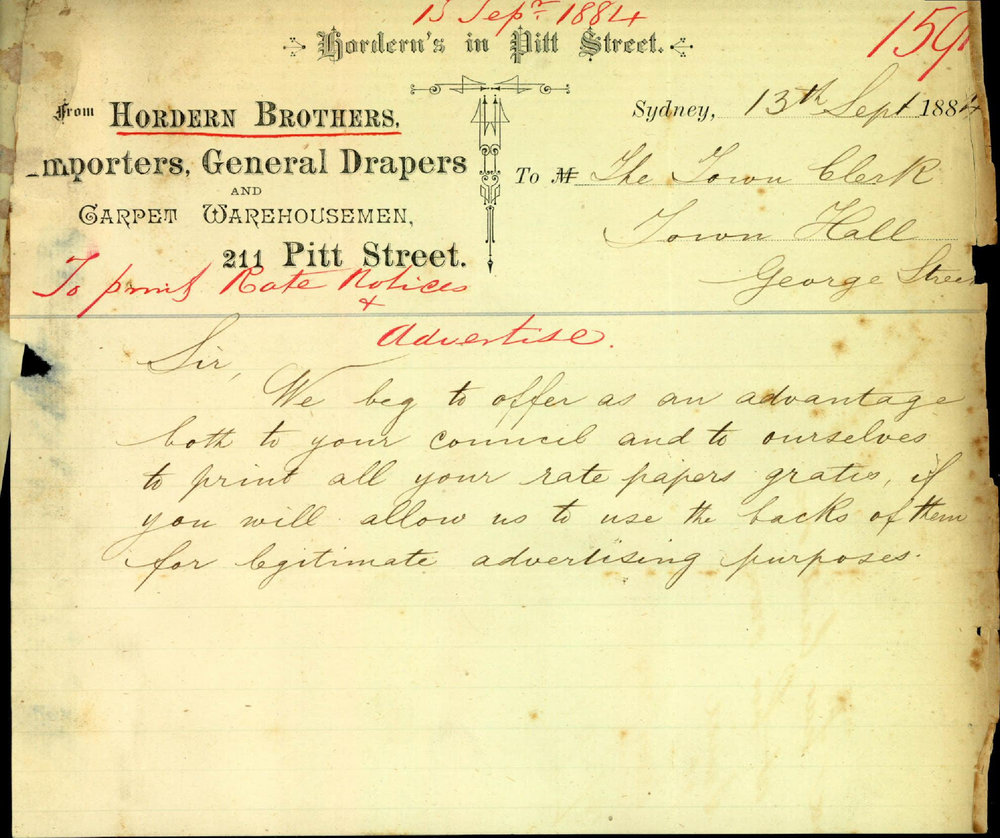 15 Sepr 1884
Hordern's in Pitt Street.
From HORDERN BROTHERS,
Importers, General Drapers
AND
CARPET WAREHOUSEMEN,
211 Pitt Street.
Sydney, 13th Sept 1884
To M The Town Clerk
Town Hall
George Street
To print Rate Notices
&
Advertise.
Sir,
We beg to offer as an advantage
both to your council and to ourselves
to print all your rate papers gratis, if
you will allow us to use the backs of them
for legitimate advertising purposes.